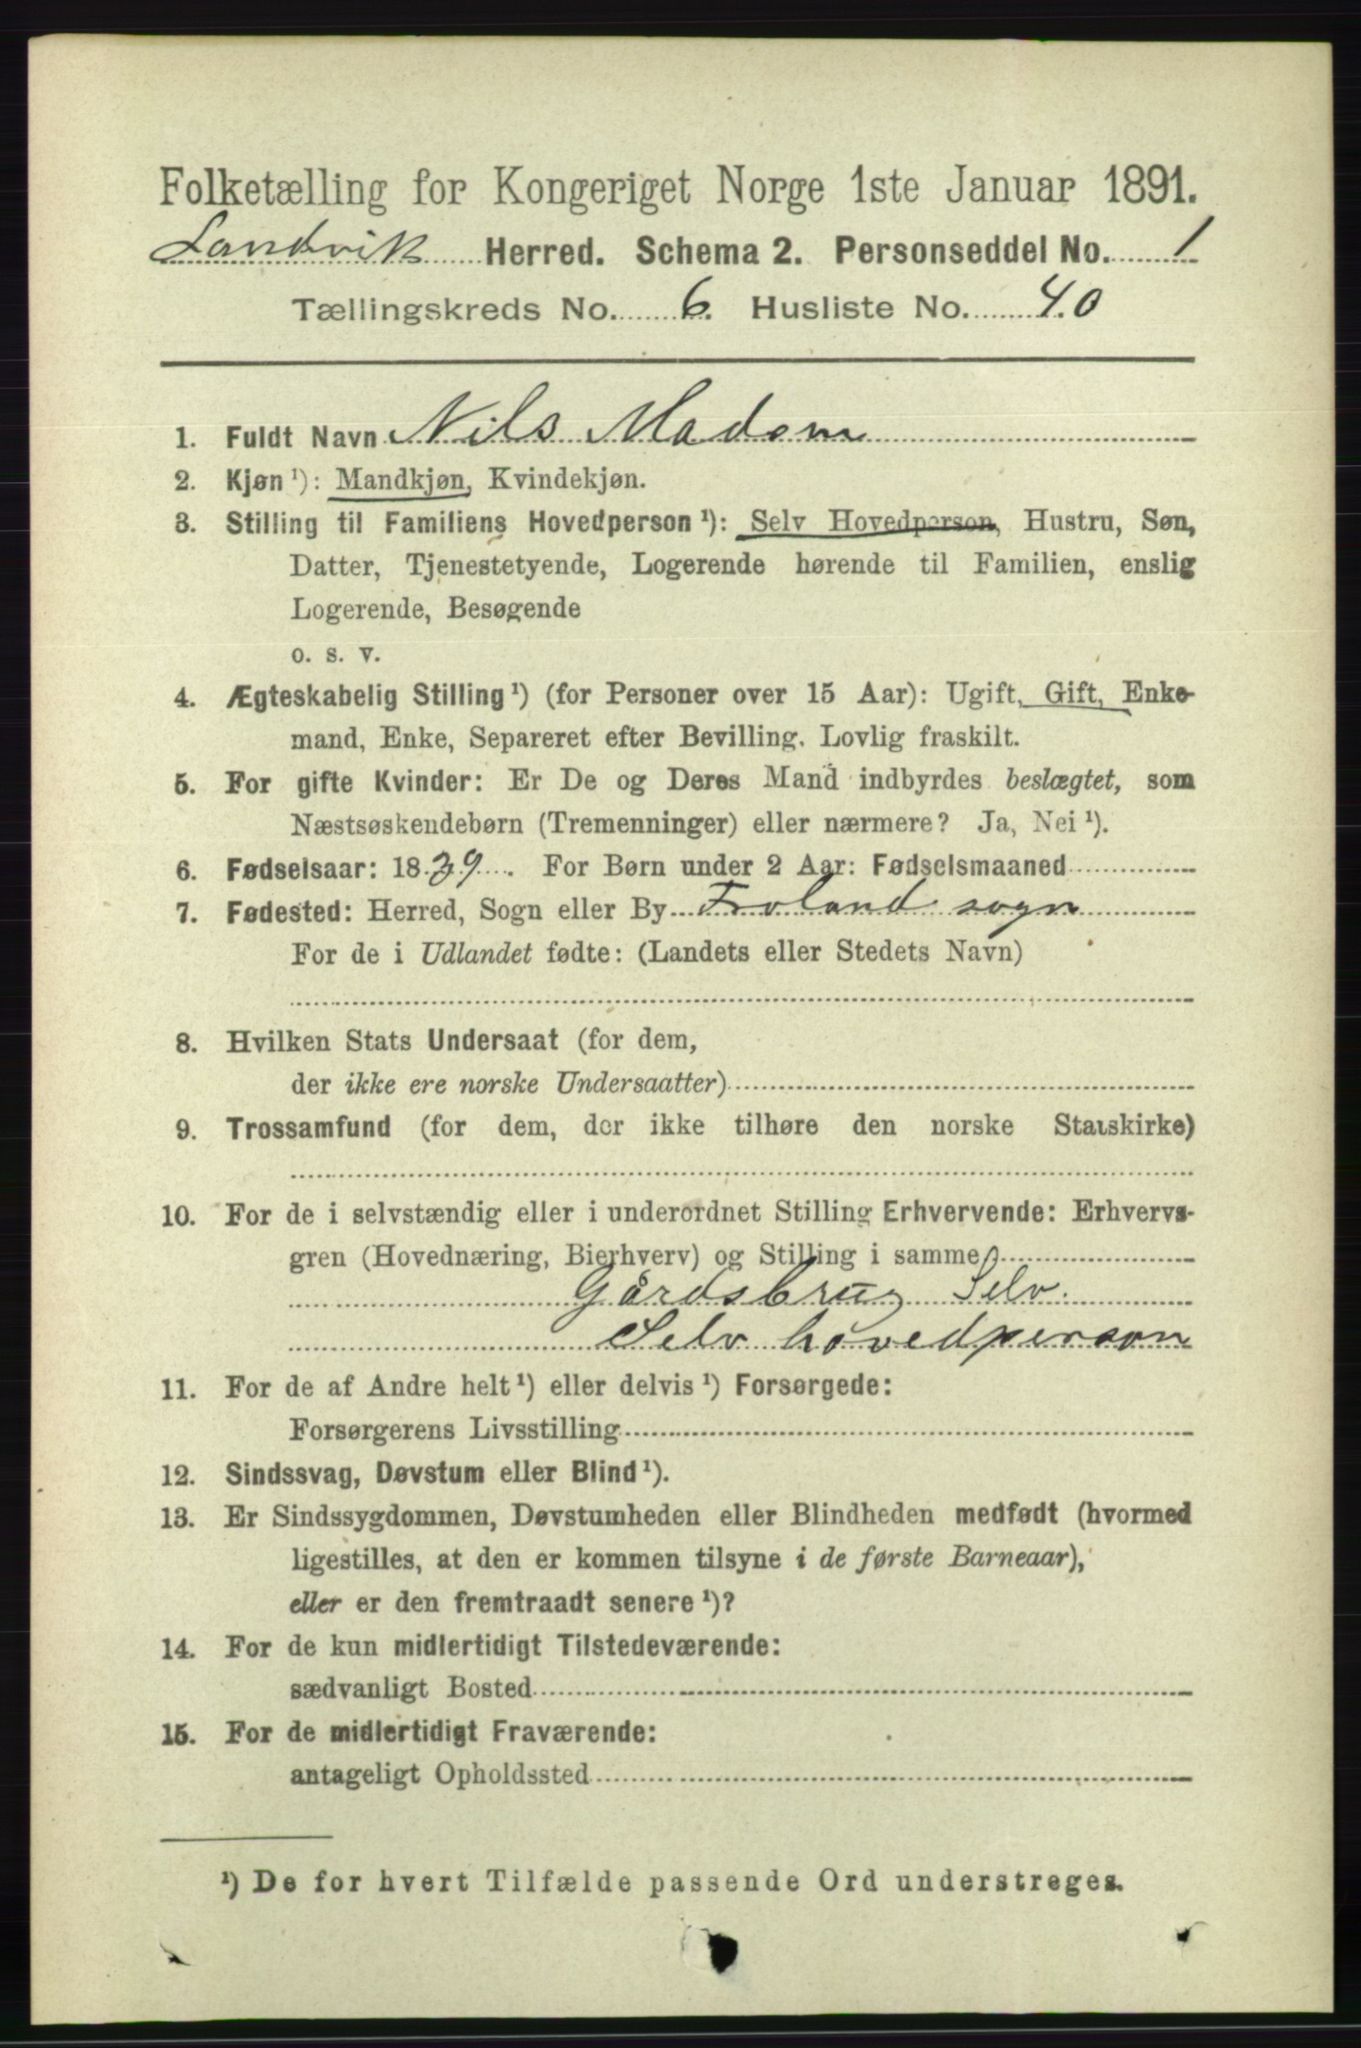 Folketælling for Kongeriget Norge 1ste Januar 1891.
Landvik Herred. Schema 2. Personseddel No. 1
Tællingskreds No. 6. Husliste No. 40
1. Fuldt Navn Nils Madsen
2. Kjøn ¹): Mandkjøn, Kvindekjøn.
3. Stilling til Familiens Hovedperson ¹): Selv Hovedperson, Hustru, Søn,
Datter, Tjenestetyende, Logerende hørende til Familien, enslig
Logerende, Besøgende
o. s. v.
4. Ægteskabelig Stilling ¹) (for Personer over 15 Aar): Ugift, Gift, Enke-
mand, Enke, Separeret efter Bevilling. Lovlig fraskilt.
5. For gifte Kvinder: Er De og Deres Mand indbyrdes beslægtet, som
Næstsøskendebørn (Tremenninger) eller nærmere? Ja, Nei ¹).
6. Fødselsaar: 1839. For Børn under 2 Aar: Fødselsmaaned
7. Fødested: Herred, Sogn eller By Froland sogn
For de i Udlandet fødte: (Landets eller Stedets Navn)
8. Hvilken Stats Undersaat (for dem,
der ikke ere norske Undersaatter)
9. Trossamfund (for dem, der ikke tilhøre den norske Statskirke)
10. For de i selvstændig eller i underordnet Stilling Erhvervende: Erhvervs-
gren (Hovednæring, Bierhverv) og Stilling i samme
Gårdsbrug Selv.
Selv hovedperson
11. For de af Andre helt ¹) eller delvis ¹) Forsørgede:
Forsørgerens Livsstilling
12. Sindssvag, Døvstum eller Blind ¹).
13. Er Sindssygdommen, Døvstumheden eller Blindheden medfødt (hvormed
ligestilles, at den er kommen tilsyne i de første Barneaar),
eller er den fremtraadt senere ¹)?
14. For de kun midlertidigt Tilstedeværende:
sædvanligt Bosted
15. For de midlertidigt Fraværende:
antageligt Opholdssted
¹) De for hvert Tilfælde passende Ord understreges.